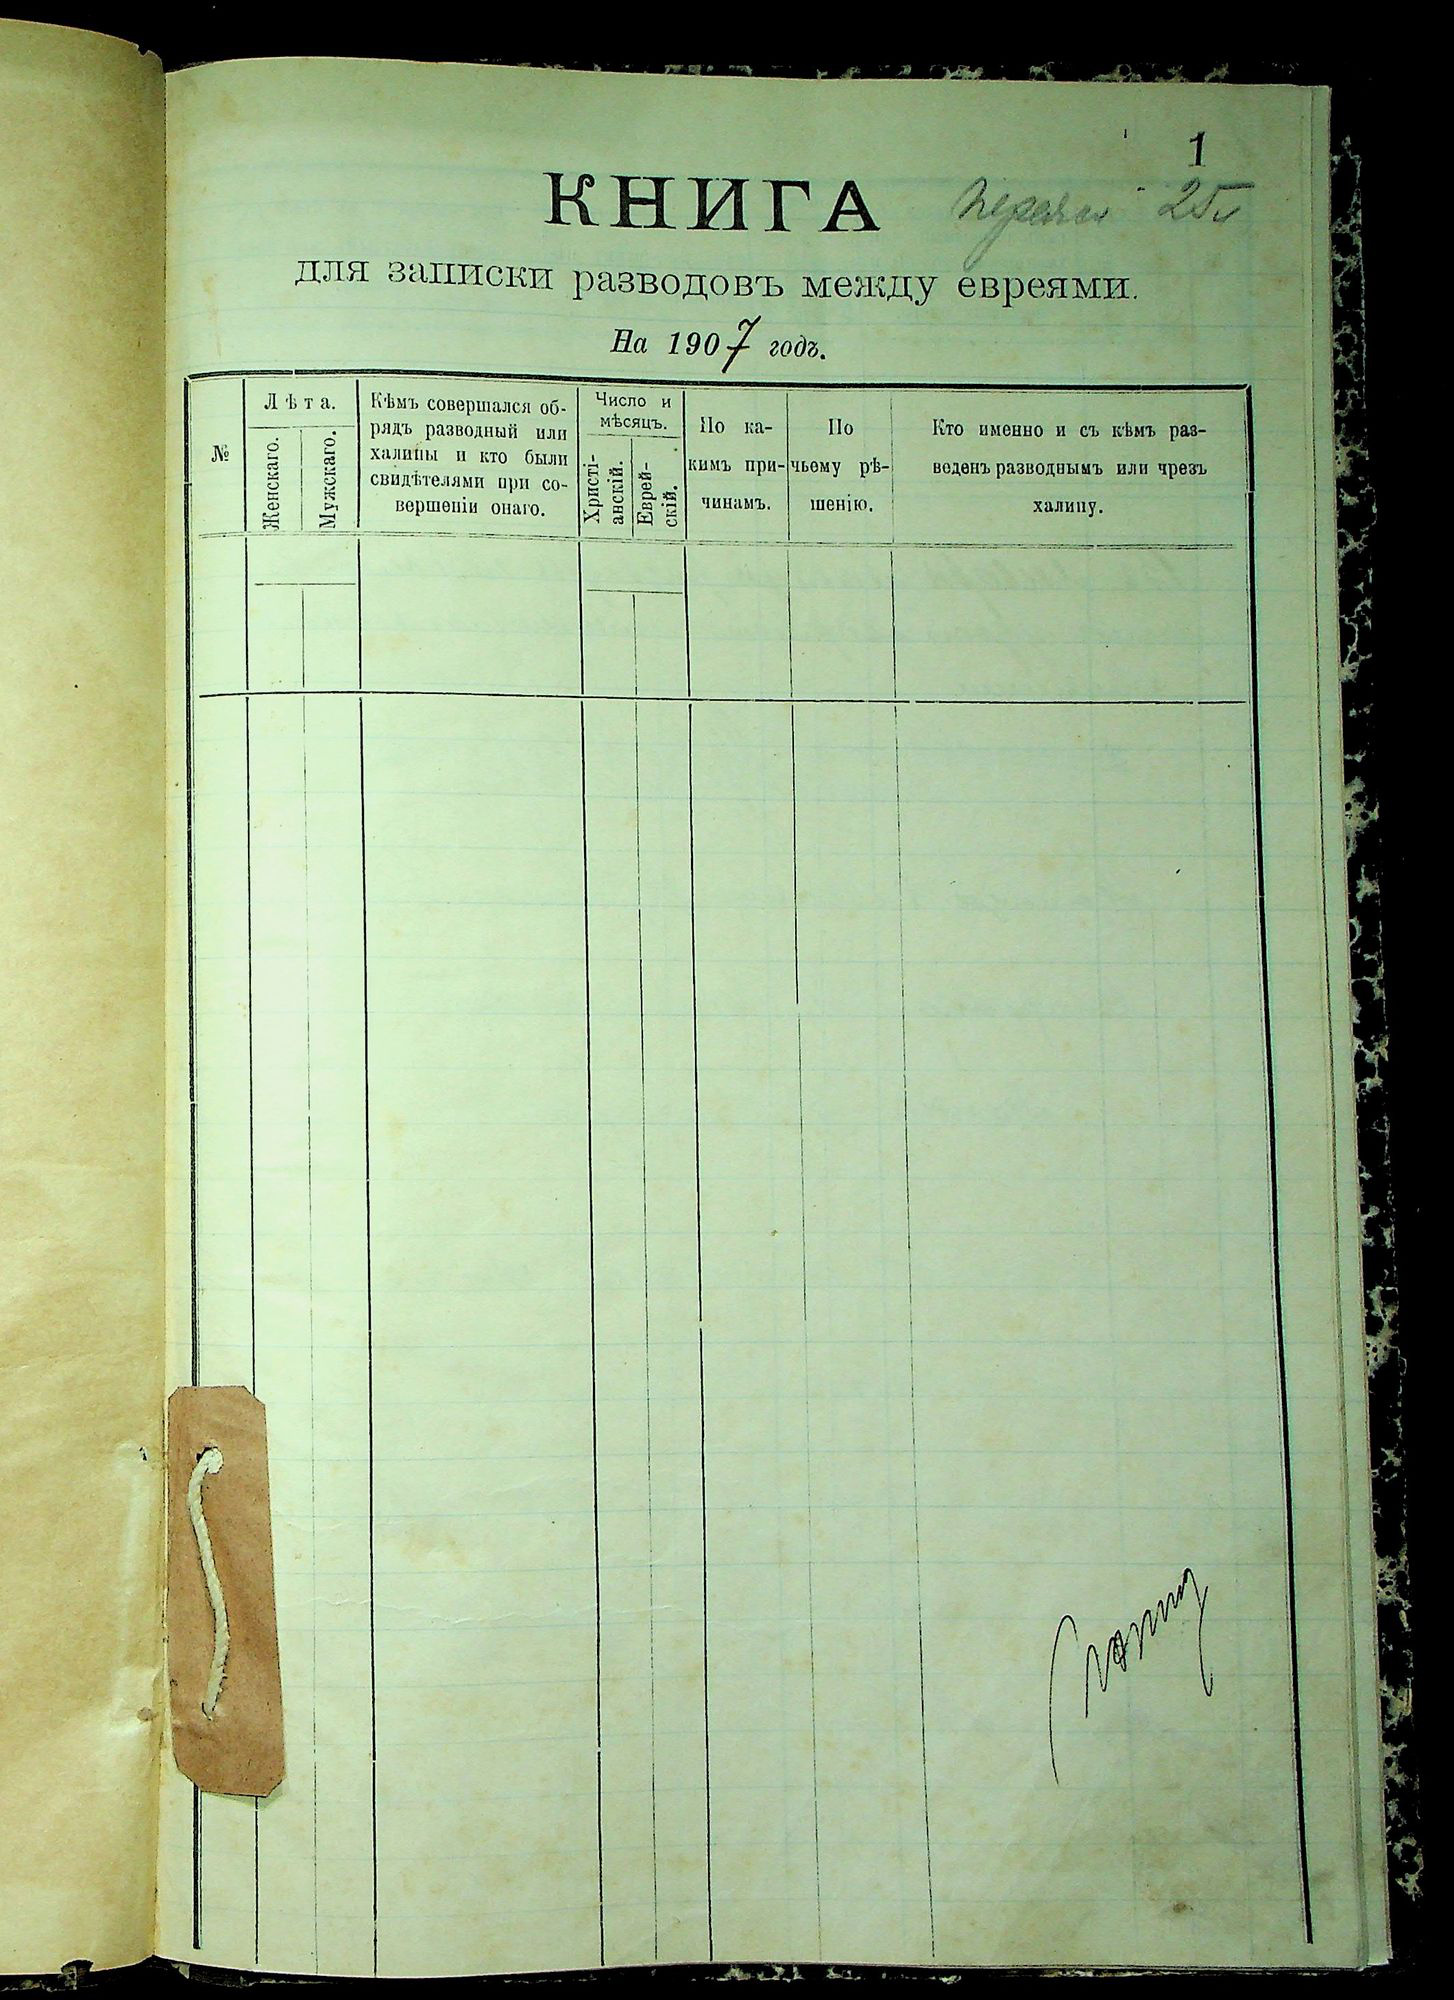 1
КНИГА
25
для записки разводовъ между евреями.
На 1907 годъ.
№
Лѣта.
Женскаго.
Мужскаго.
Кѣмъ совершался об-
рядъ разводный или
халицы и кто были
свидѣтелями при со-
вершеніи онаго.
Число и
мѣсяцъ.
Христі-
анскій.
Еврей-
скій.
По ка-
кимъ при-
чинамъ.
По
чьему рѣ-
шенію.
Кто именно и съ кѣмъ раз-
веденъ разводнымъ или чрезъ
халицу.